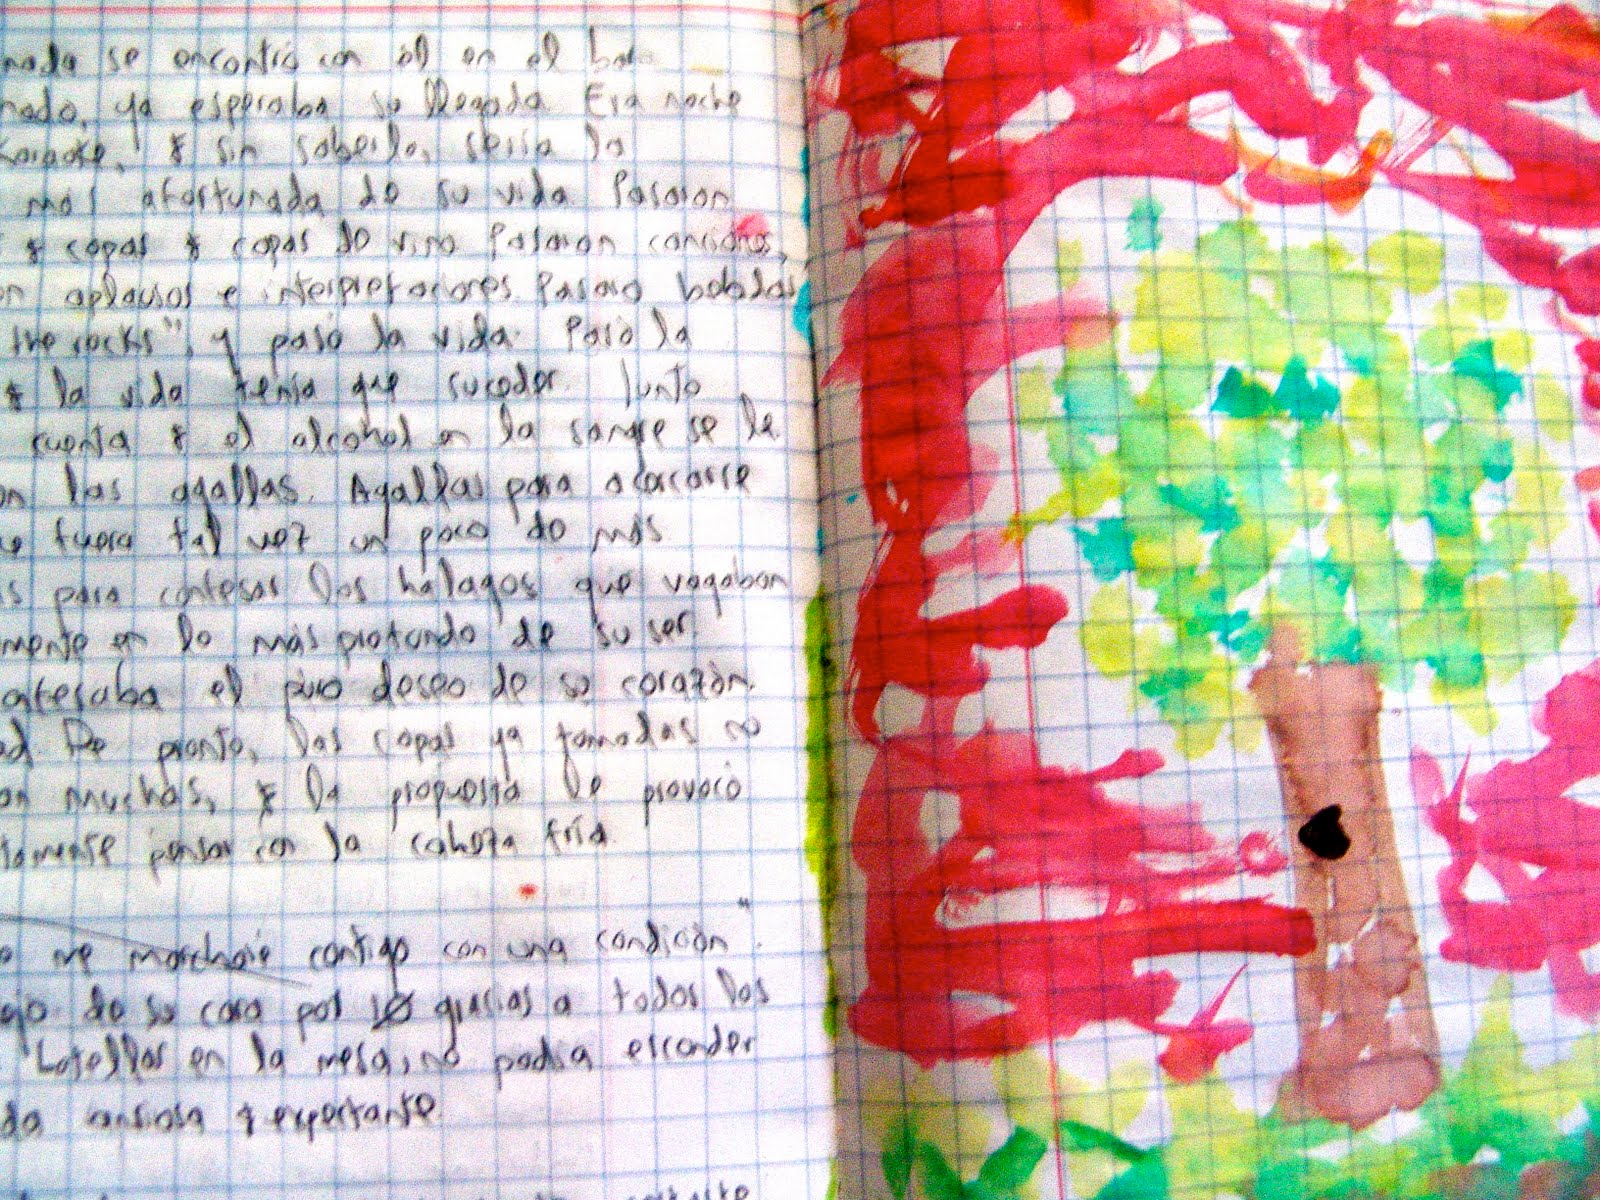 nada se encontró con él en el
nado, ya esperaba su llegada Era noche
karaoke, & sin saberlo, sería la
más afortunada de su vida Pasaron
& copas & copas de vino Pasaron canciones,
on aplausos e interpretadores Pasaro bebidas
the rocks", y pasó la vida. Pasó la
& la vida tenía que suceder. Junto
cuenta & el alcohol en la sangre se le
on las agallas. Agallas para acercarse
fuera tal vez un poco de más
s para confesar los halagos que vagaban
mente en lo más profundo de su ser.
el puro deseo de su corazón.
ad De pronto, las copas ya tomadas no
on muchas, & la propuesta le provocó
tamente pensar con la cabeza fría.
o me marcharé contigo con una condición"
ojo de su cara por gracias a todos los
botellas en la mesa, no podía esconder
da ansiosa & expectante.